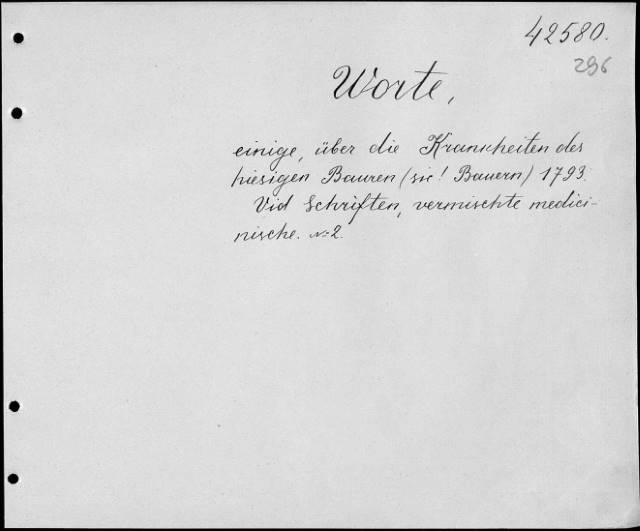 42580.
296
Worte,
einige, über die Krankheiten des
hiesigen Bauren (sic! Bauern) 1793.
Vid Schriften, vermischte medici-
nische. №2.